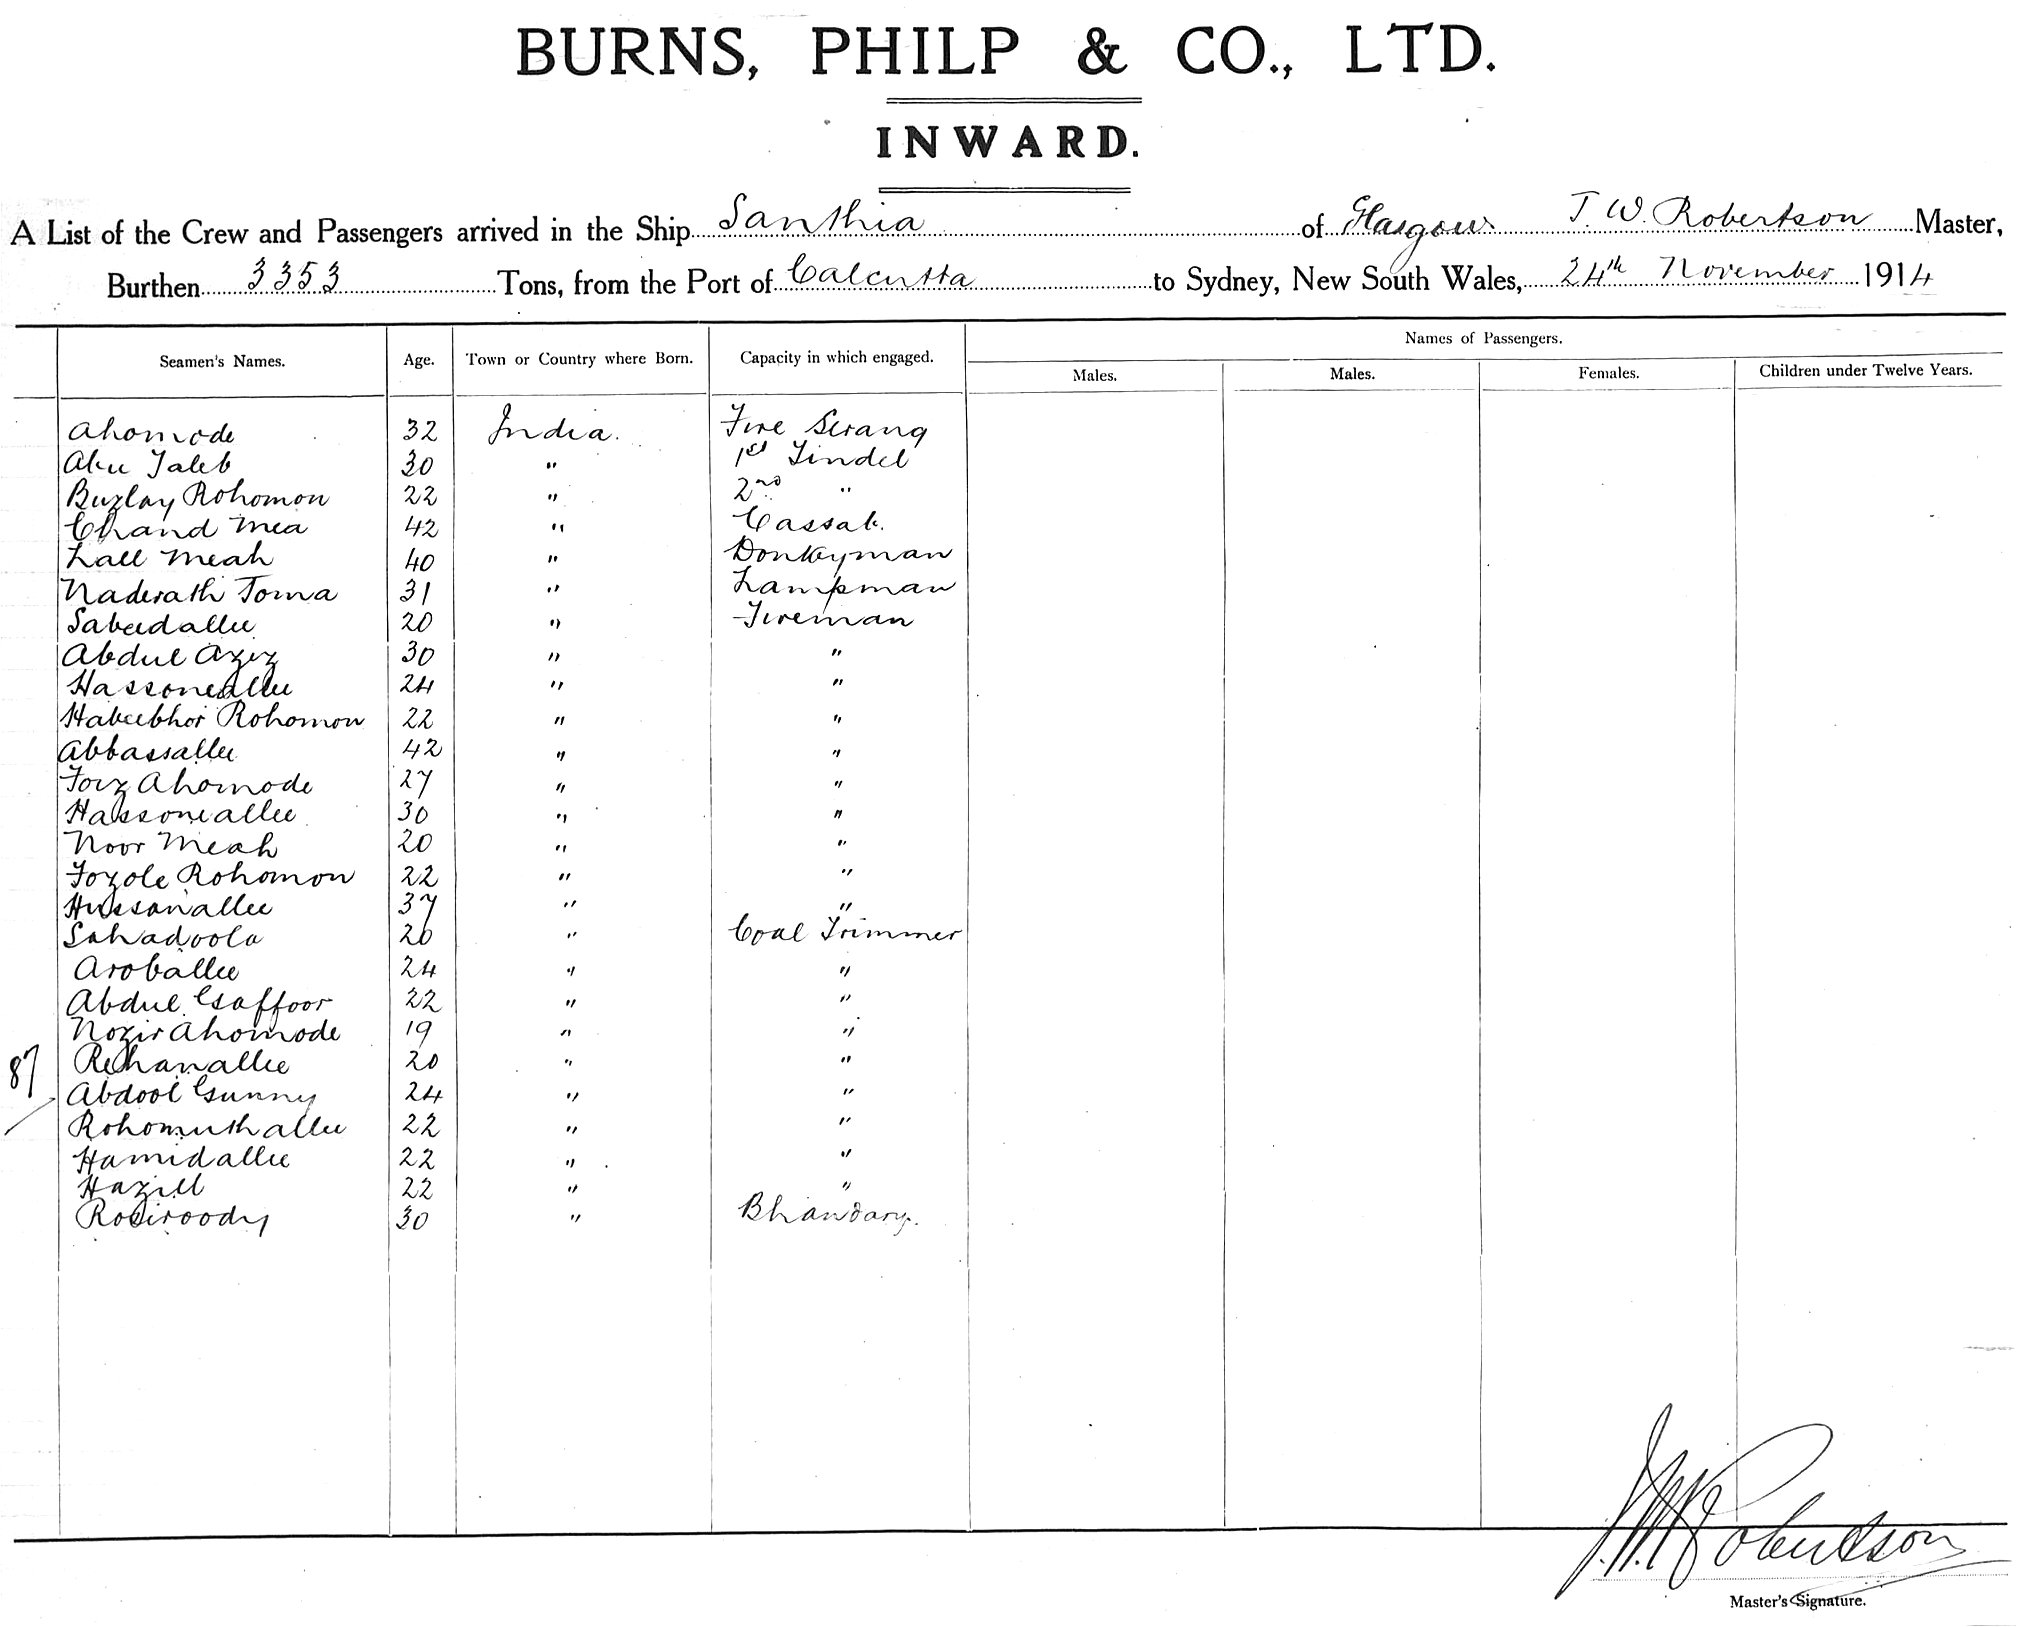 BURNS, PHILP & CO., LTD.
INWARD.
A List of the Crew and Passengers arrived in the Ship Santhia of Glasgow J. W. Robertson Master,
Burthen 3353 Tons, from the Port of Calcutta to Sydney, New South Wales, 24th November 1914
Names of Passengers.
Seamen's Names. Age. Town or Country where Born. Capacity in which engaged. Males. Males. Females. Children under Twelve Years.
Ahomode 32 India. Fire Serang
Abu Taleb 30 " 1st Tindel
Buzlay Rohomon 22 " 2nd "
Chand Mea 42 " Cassab.
Lall Meah 40 " Donkeyman
Naderath Toma 31 " Lampman
Sabedallee 20 " Fireman
Abdul Aziz 30 " "
Hassoneallee 24 " "
Habeebhor Rohomon 22 " "
Abbassallee 42 " "
Foiz Ahomode 27 " "
Hassoneallee 30 " "
Noor Meah 20 " "
Fozole Rohomon 22 " "
Hussonallee 37 " "
Sahadoola 20 " Coal Trimmer
Aroballee 24 " "
Abdul Gaffoor 22 " "
Nozir Ahomode 19 " "
87 Rehanallee 20 " "
Abdool Gunny 24 " "
Rohomuthallee 22 " "
Hamidallee 22 " "
Hazill 22 " "
Rosiroody 30 " Bhandary.
J. W. Robertson
Master's Signature.